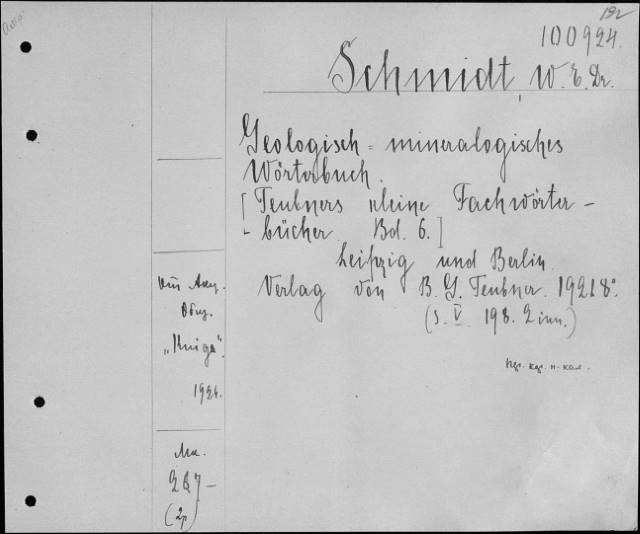 100924.
Schmidt, W. E. Dr.
Geologisch = mineralogisches
Wörterbuch.
[Teubners kleine Fachwörter -
- bücher. Bd. 6.]
Leipzig und Berlin.
Verlag von B. G. Teubner. 1921 8°.
(S. V. 198. 2 inn.)
"Книга".
1924.
267 -
(2р)